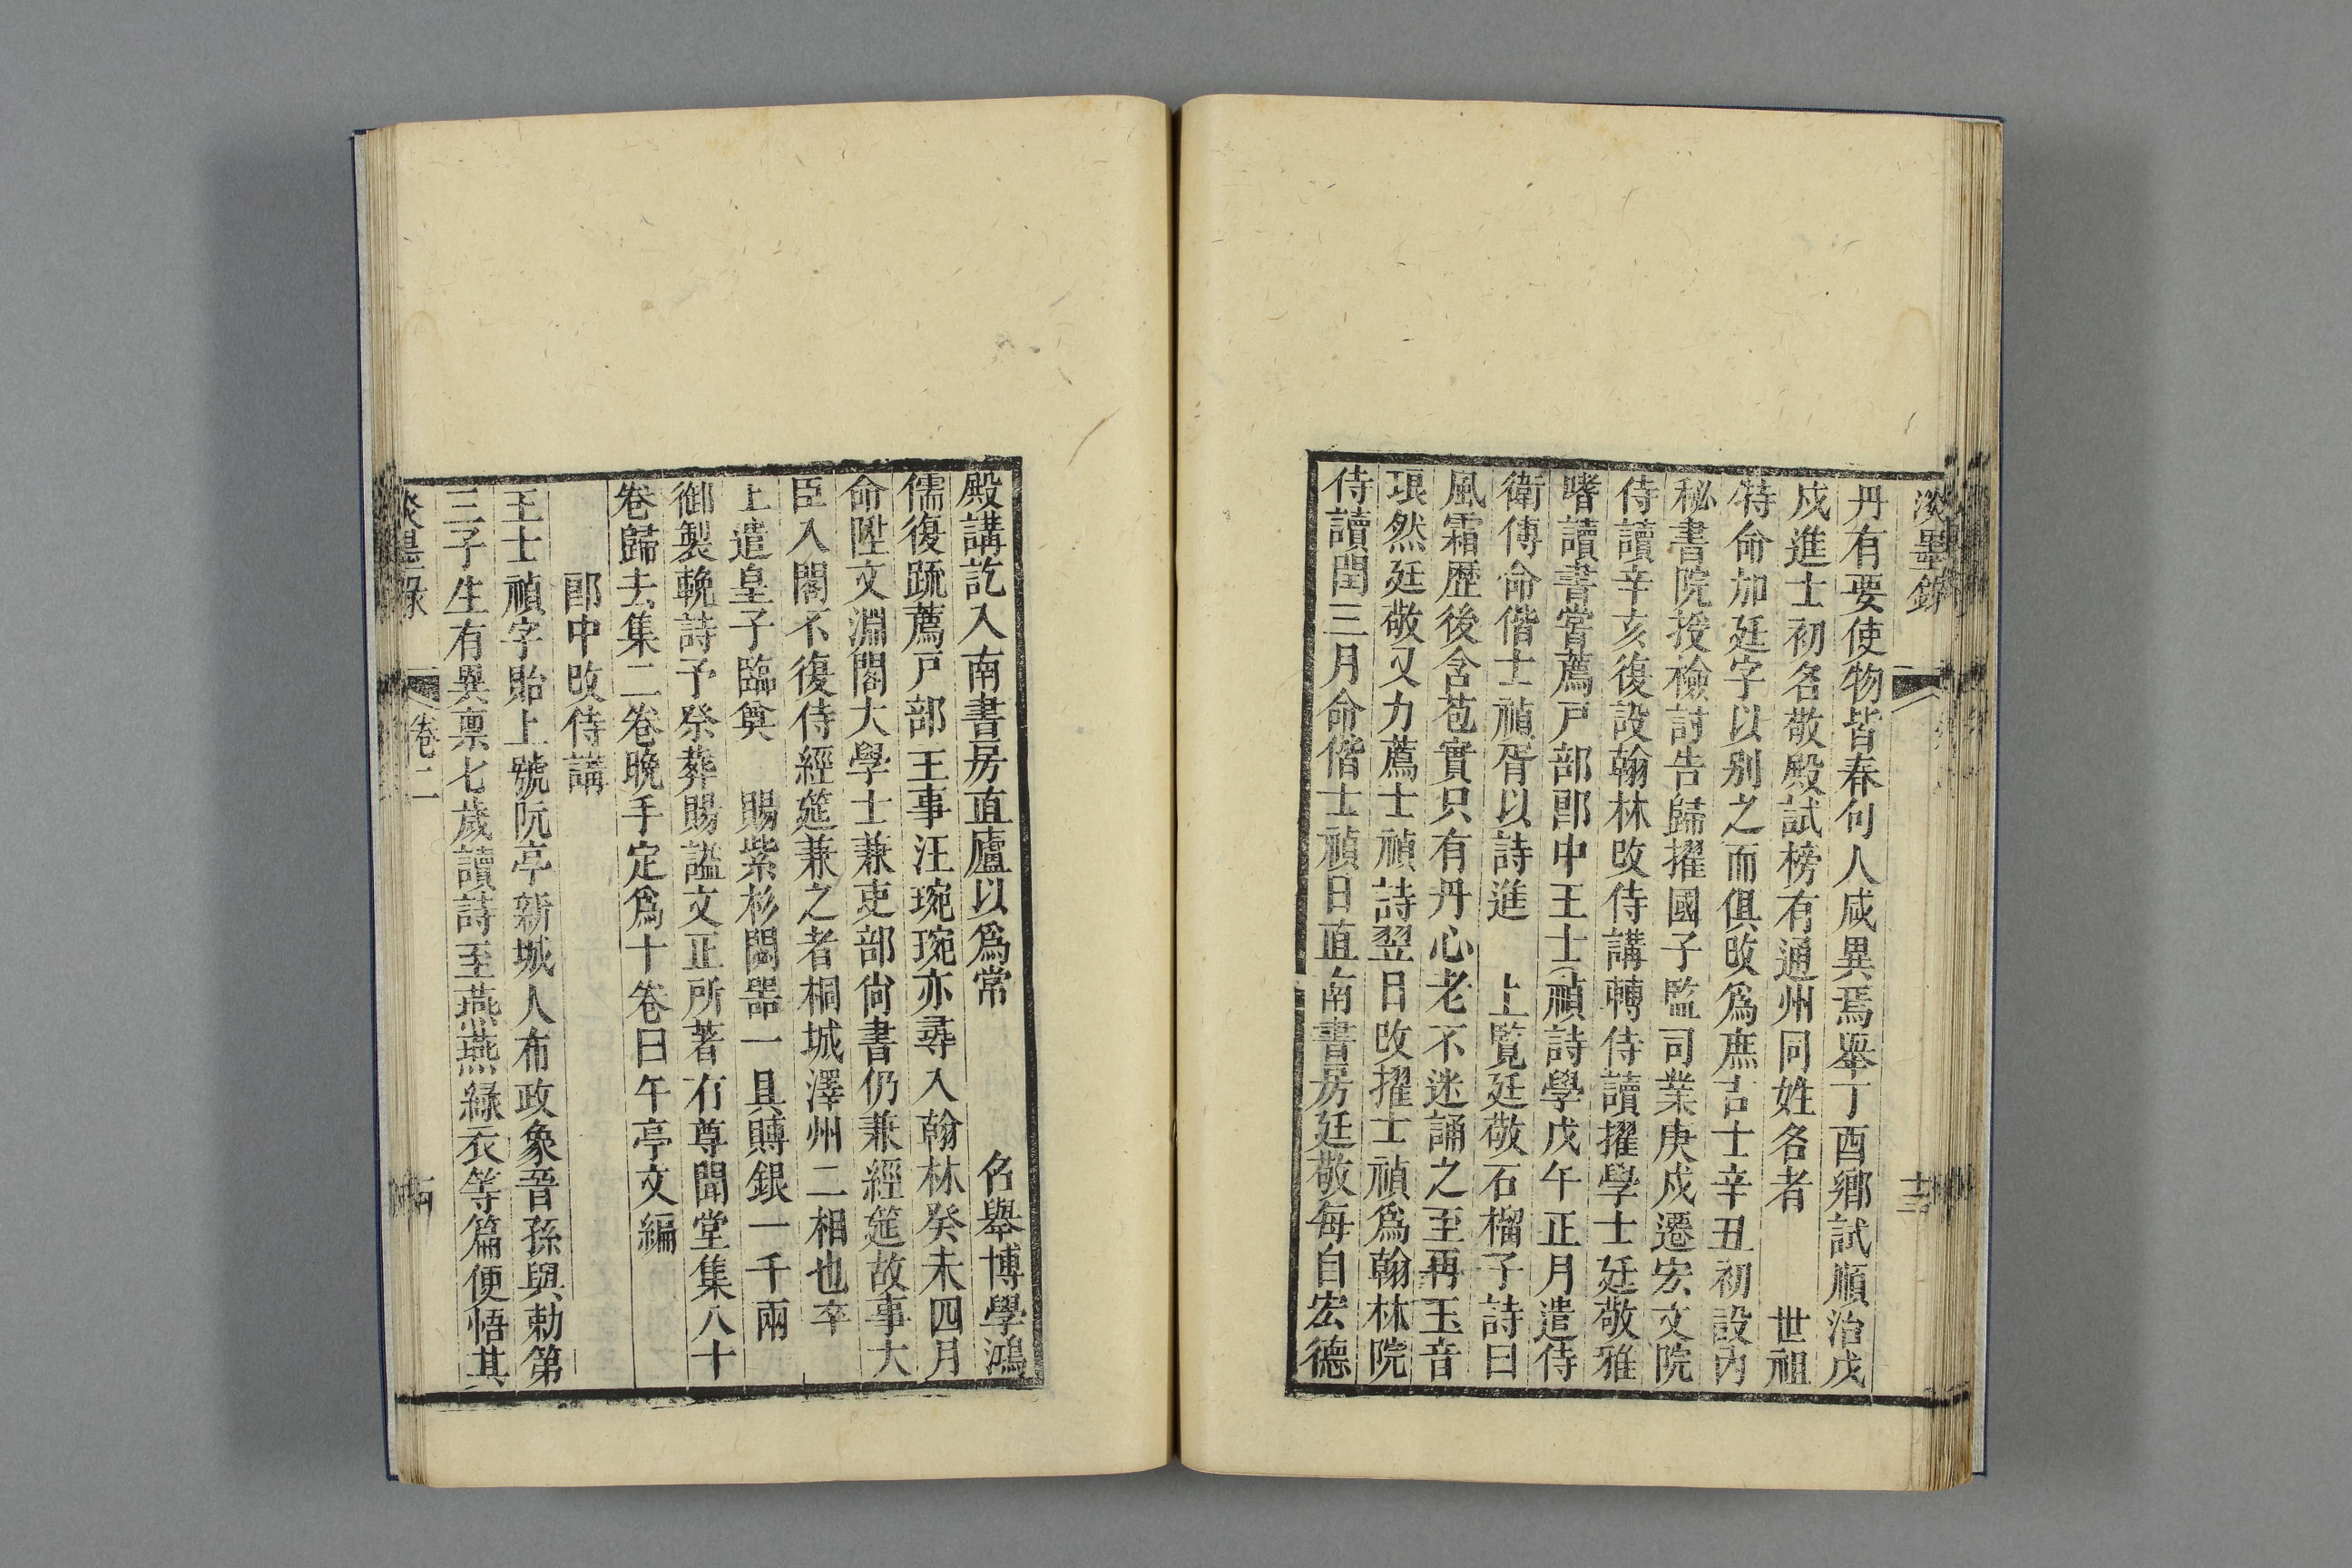 淡墨錄
十三
丹有要使物皆春句人咸異焉舉丁酉鄉試順治戊
戍進士初名敬殿試榜有通州同姓名者 世祖
特命加廷字以别之而俱改爲庶吉士辛丑初設內
秘書院授檢討告歸擢國子監司業庚戍遷宏文院
侍讀辛亥復設翰林改侍講轉侍讀擢學士廷敬雅
嗜讀書嘗薦戸部郎中王士禎詩學戊午正月遣侍
衛傳命偕士禎胥以詩進 上覧廷敬石榴子詩曰
風霜歴後含苞實只有丹心老不迷誦之至再玉音
琅然廷敬又力薦士禎詩翌日改擢士禎爲翰林院
侍讀閏三月命偕士禎日直南書房廷敬每自宏德
殿講訖入南書房直廬以爲常 名舉博學鴻
儒復䟽薦戸部王事汪琬琬亦尋入翰林癸未四月
命陞文淵閣大學士兼吏部尙書仍兼經筵故事大
臣入閣不復侍經筵兼之者桐城澤州二相也卒
上遣皇子臨奠 賜紫杉闆器一具賻銀一千兩
御製輓詩予祭葬賜謚文正所著有尊聞堂集八十
卷歸去集二卷晚手定爲十卷曰午亭文編
郎中改侍講
王士禎字貽上號阮亭新城人布政象晉孫與勅第
三子生有異禀七歲讀詩至燕燕緑衣等篇便悟其
淡墨錄
卷二